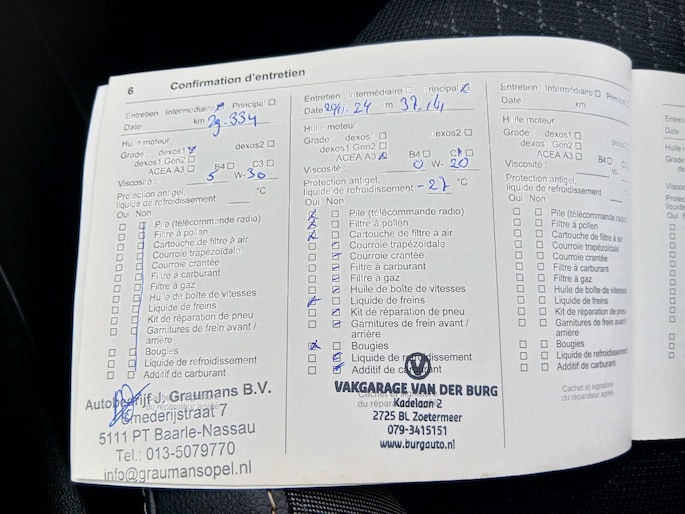 6 Confirmation d'entretien
Entretien Intermédiaire ☒ Principal ☐
Date km 29.334
Huile moteur
Grade : dexos1 ☒ dexos2 ☐
dexos1 Gen2 ☐
ACEA A3 ☐ B4 ☐ C3 ☐
Viscosité : 5 W- 30
Protection antigel,
liquide de refroidissement °C
Oui Non
☐ ☐ Pile (télécommande radio)
☐ ☐ Filtre à pollen
☐ ☐ Cartouche de filtre à air
☐ ☐ Courroie trapézoïdale
☐ ☐ Courroie crantée
☐ ☐ Filtre à carburant
☐ ☐ Filtre à gaz
☐ ☐ Huile de boîte de vitesses
☐ ☐ Liquide de freins
☐ ☐ Kit de réparation de pneu
☐ ☐ Garnitures de frein avant /
arrière
☐ ☐ Bougies
☐ ☐ Liquide de refroidissement
☐ ☐ Additif de carburant
Autobedrijf J. Graumans B.V.
du réparateur agréé
Smederijstraat 7
5111 PT Baarle-Nassau
Tel.: 013-5079770
info@graumansopel.nl
Entretien Intermédiaire ☐ Principal ☒
Date km
Huile moteur
Grade : dexos1 ☐ dexos2 ☐
dexos1 Gen2 ☐
ACEA A3 ☒ B4 ☐
Viscosité : 0 W- 20
Protection antigel,
liquide de refroidissement -27 °C
Oui Non
☒ ☐ Pile (télécommande radio)
☒ ☐ Filtre à pollen
☒ ☐ Cartouche de filtre à air
☐ ☒ Courroie trapézoïdale
☐ ☒ Courroie crantée
☐ ☒ Filtre à carburant
☐ ☒ Filtre à gaz
☐ ☒ Huile de boîte de vitesses
☒ ☐ Liquide de freins
☐ ☒ Kit de réparation de pneu
☐ ☒ Garnitures de frein avant /
arrière
☒ ☐ Bougies
☐ ☒ Liquide de refroidissement
☐ ☒ Additif de carburant
VAKGARAGE VAN DER BURG
Kadelaan 2
2725 BL Zoetermeer
079-3415151
www.burgauto.nl
Entretien Intermédiaire ☐
Date km
Huile moteur
Grade : dexos1 ☐
dexos1 Gen2 ☐
ACEA A3 ☐ B4 ☐
Viscosité : W-
Protection antigel,
liquide de refroidissement
Oui Non
☐ ☐ Pile (télécommande radio)
☐ ☐ Filtre à pollen
☐ ☐ Cartouche de filtre à air
☐ ☐ Courroie trapézoïdale
☐ ☐ Courroie crantée
☐ ☐ Filtre à carburant
☐ ☐ Filtre à gaz
☐ ☐ Huile de boîte de vitesses
☐ ☐ Liquide de freins
☐ ☐ Kit de réparation de pneu
☐ ☐ Garnitures de frein avant /
arrière
☐ ☐ Bougies
☐ ☐ Liquide de refroidissement
☐ ☐ Additif de carburant
Cachet et signature
du réparateur agréé